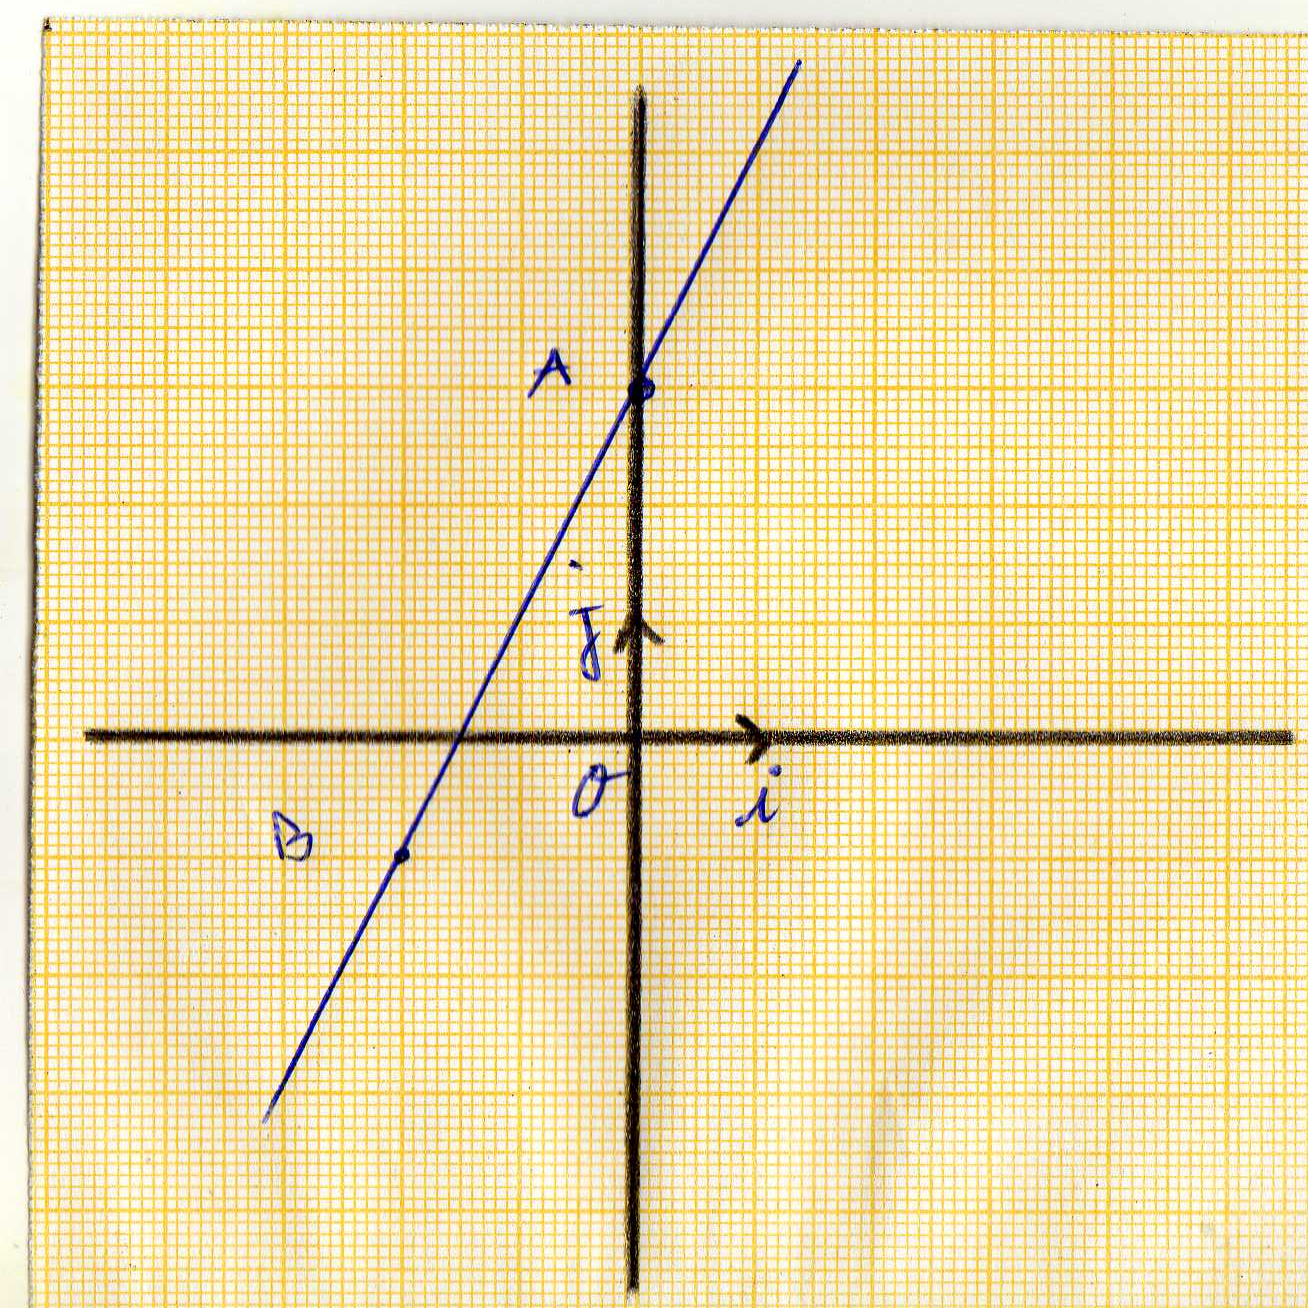 A
j
O
i
B